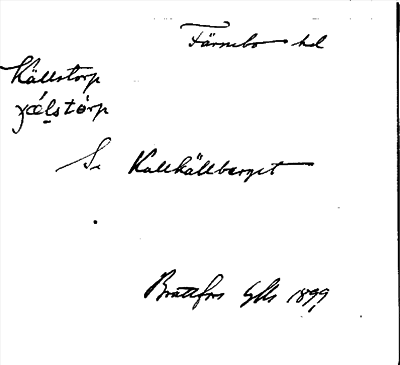 Färnebo hd
Källstorp
Se Kallkällberget
Brattfors 1899